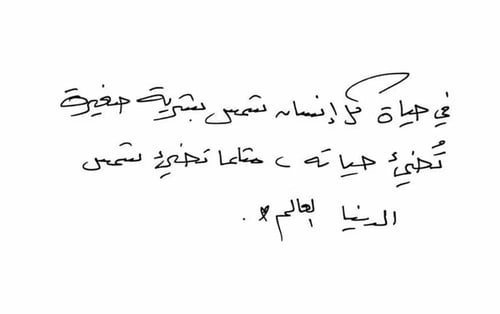 في حياة كل إنسان شمس بشرية صغيرة
تُضيئ حياته، مثلما تضيئ شمس
الدنيا العالم.